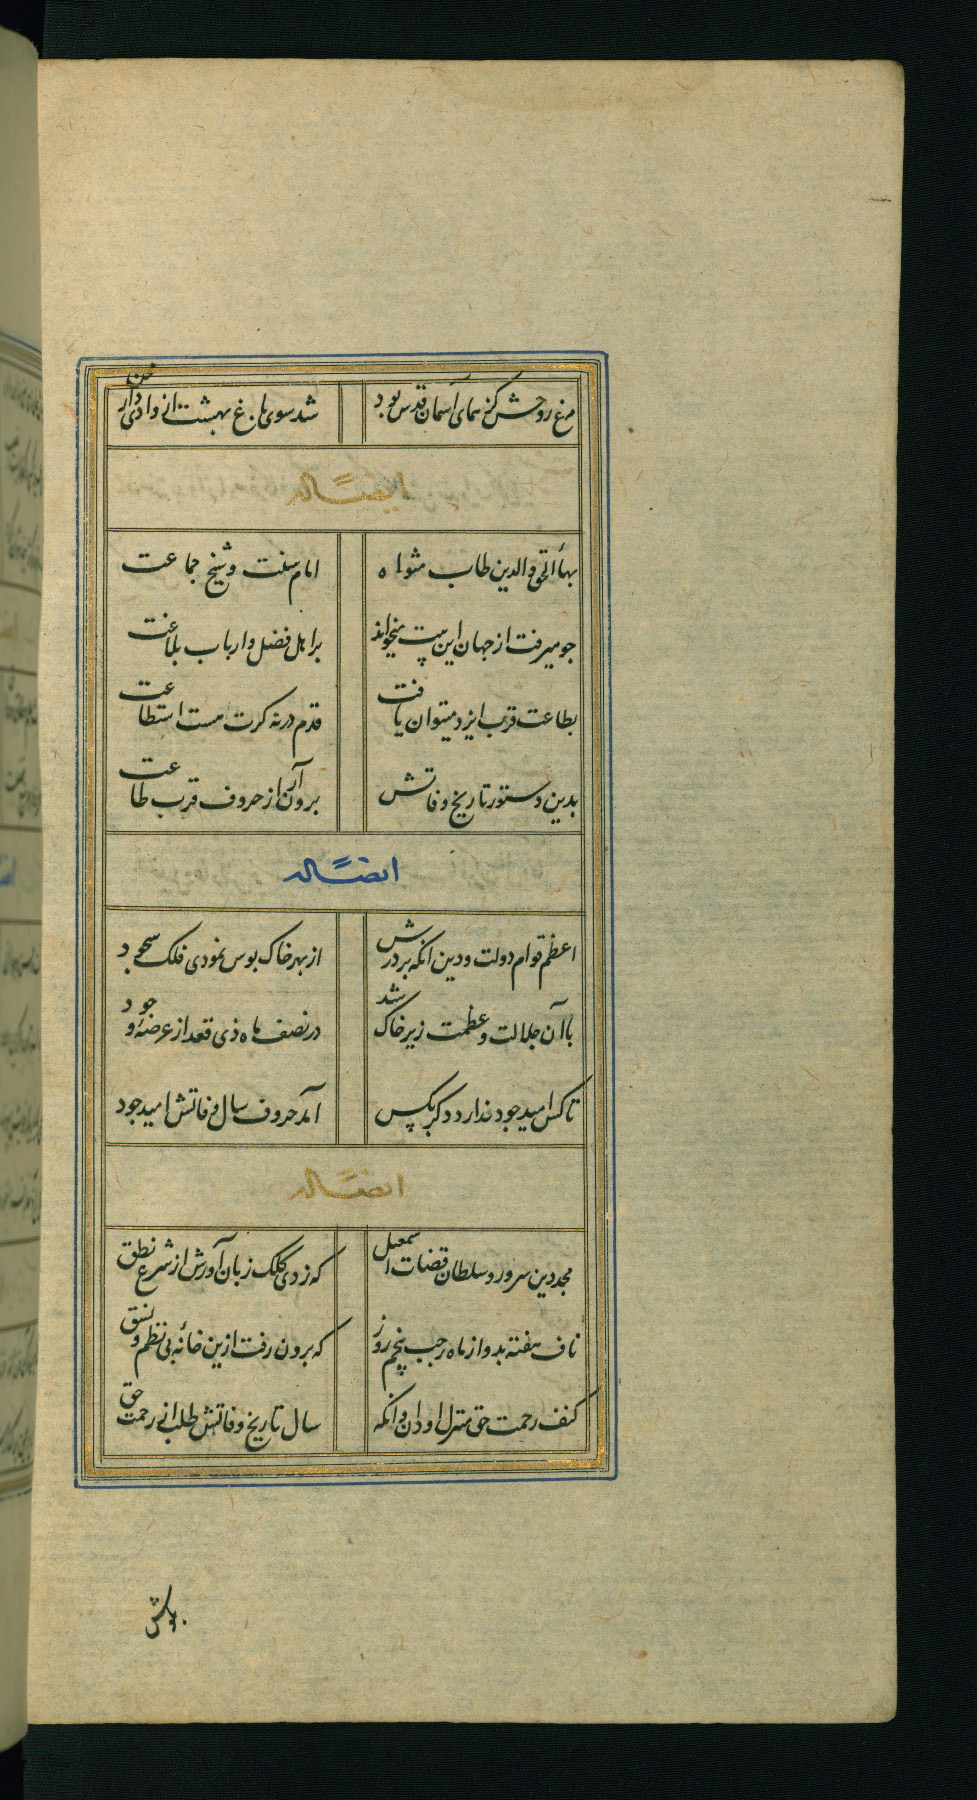 مرغ روحش کز همای آسمان قدس بود شد سوی باغ بهشت از وادی دار محن
ایضًا له
بهاء الحق والدین طاب مثواه امام سنت و شیخ جماعت
جو میرفت از جهان این بیت میخواند بر اهل فضل و ارباب بلاغت
بطاعت قرب ایزد میتوان یافت قدم در نه کرت هست استطاعت
بدین دستور تاریخ وفاتش برون آر از حروف قرب طاعت
ایضًا له
اعظم قوام دولت و دین انکه بر درش از بهر خاک بوس نمودی فلک سجود
با آن جلالت و عظمت زیر خاک شد در نصف ماه ذی قعد از عرصهٔ وجود
تا کس امید جود ندارد دکر بکس آمد حروف سال وفاتش امید جود
ایضًا له
مجد دین سرور و سلطان قضات اسمعیل که زدی کلک زبان آورش از شرع نطق
ناف هفته بد و از ماه رجب پنجم روز که برون رفت ازین خانهٔ بی نظم و نسق
کنف رحمت حق منزل او دان وانکه سال تاریخ وفاتش طلب از رحمت حق